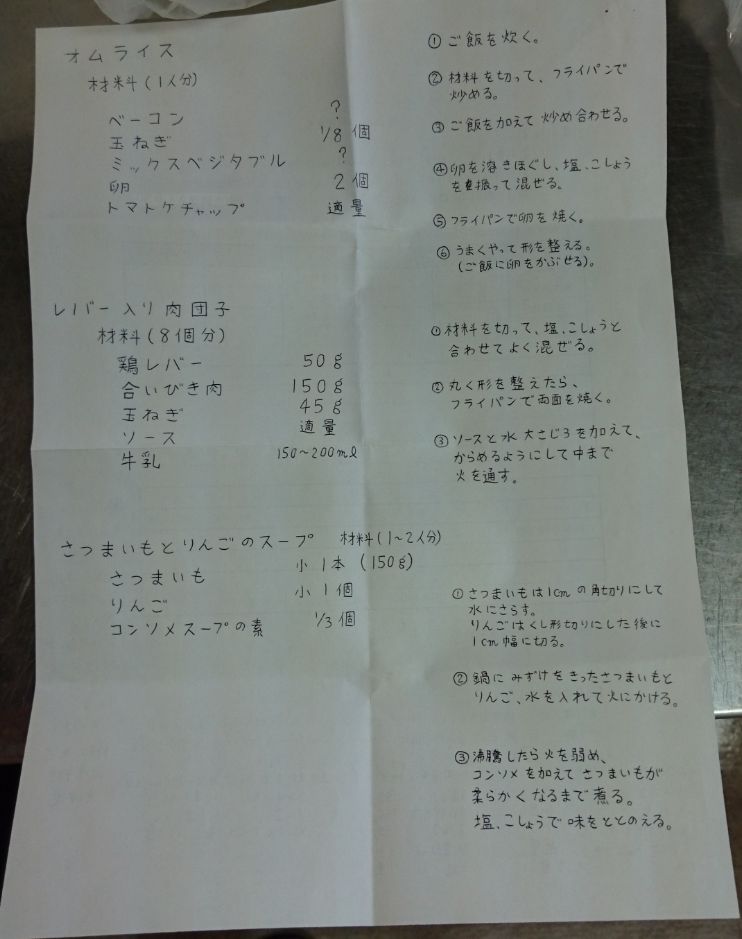 オムライス
材料(1人分)
ベーコン ?
玉ねぎ 1/8個
ミックスベジタブル ?
卵 2個
トマトケチャップ 適量
① ご飯を炊く。
② 材料を切って、フライパンで
炒める。
③ ご飯を加えて炒め合わせる。
④ 卵を溶きほぐし、塩、こしょう
を振って混ぜる。
⑤ フライパンで卵を焼く。
⑥ うまくやって形を整える。
(ご飯に卵をかぶせる)。
レバー入り肉団子
材料(8個分)
鶏レバー 50g
合いびき肉 150g
玉ねぎ 45g
ソース 適量
牛乳 150~200ml
① 材料を切って、塩、こしょうと
合わせてよく混ぜる。
② 丸く形を整えたら、
フライパンで両面を焼く。
③ ソースと水 大さじ3を加えて、
からめるようにして中まで
火を通す。
さつまいもとりんごのスープ 材料(1~2人分)
さつまいも 小1本(150g)
りんご 小1個
コンソメスープの素 1/3個
① さつまいもは1cmの角切りにして
水にさらす。
りんごはくし形切りにした後に
1cm幅に切る。
② 鍋にみずけをきったさつまいもと
りんご、水を入れて火にかける。
③ 沸騰したら火を弱め、
コンソメを加えてさつまいもが
柔らかくなるまで煮る。
塩、こしょうで味をととのえる。